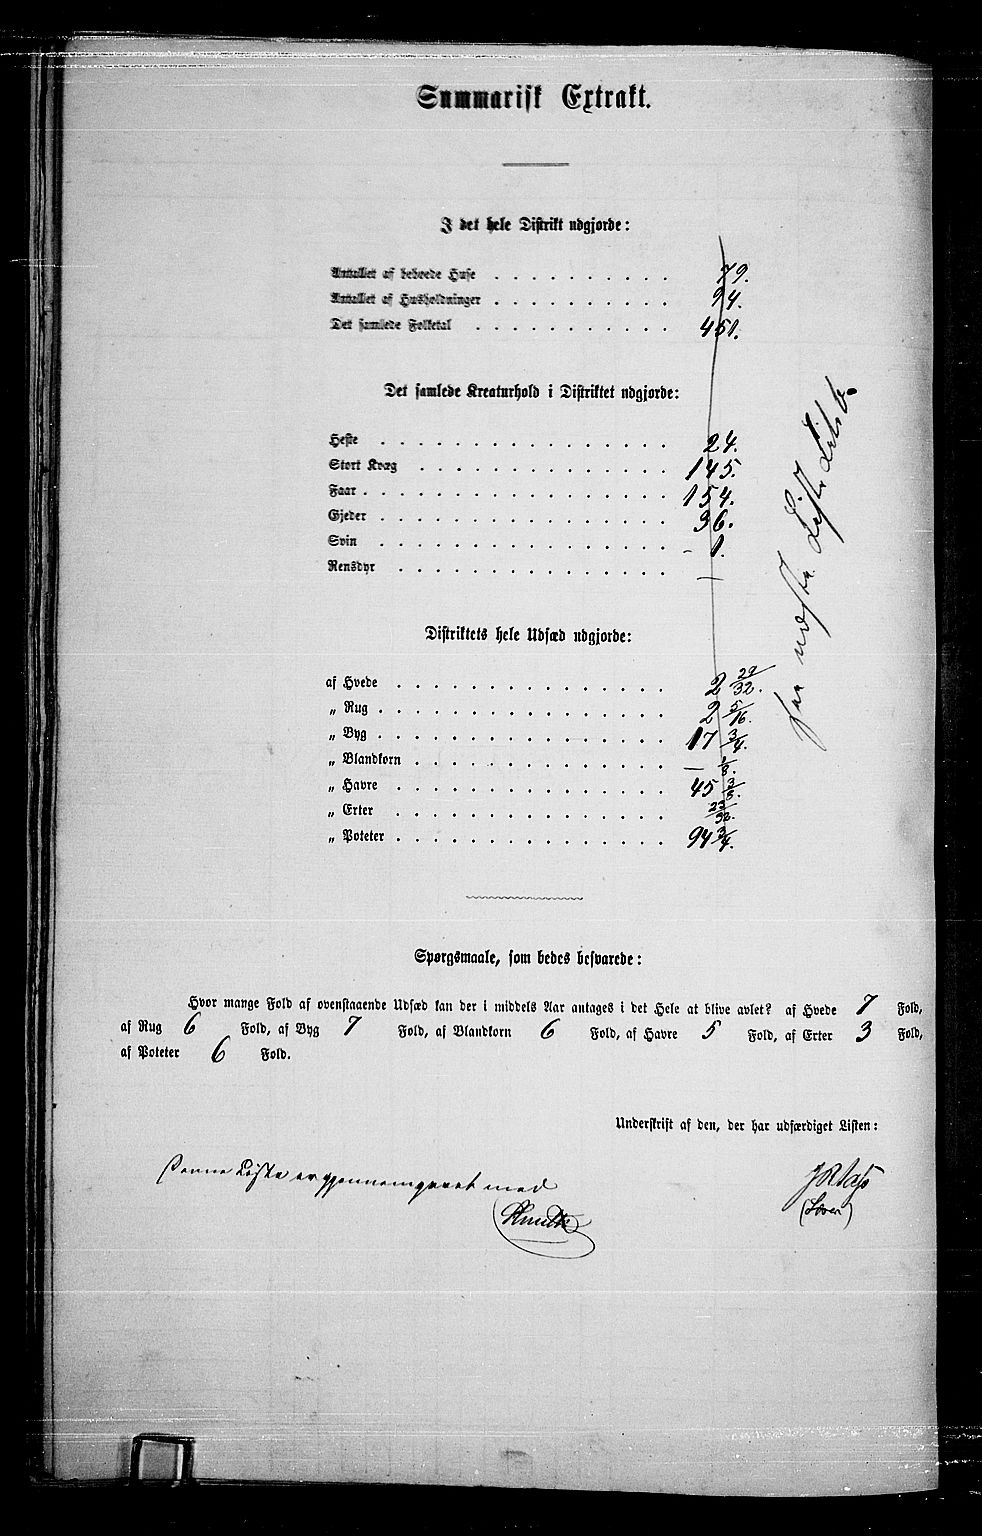 Summarisk Extrakt.
I det hele Distrikt udgjorde:
Antallet af beboede Huse . . . . . . . . . . 79.
Antallet af Husholdninger . . . . . . . . . . 94.
Det samlede Folketal . . . . . . . . . . . 451.
Det samlede Kreaturhold i Distriktet udgjorde:
Heste . . . . . . . . . . . . . . . 24.
Stort Kvæg . . . . . . . . . . . . . 145.
Faar . . . . . . . . . . . . . . . . 154.
Gjeder . . . . . . . . . . . . . . . 36.
Svin . . . . . . . . . . . . . . . – 1.
Rensdyr . . . . . . . . . . . . . . –
Distriktets hele Udsæd udgjorde:
af Hvede . . . . . . . . . . . . . . 2 29/32.
„ Rug . . . . . . . . . . . . . . . 2 5/16.
„ Byg . . . . . . . . . . . . . . . 17 3/4.
„ Blandkorn . . . . . . . . . . . . . – 1/8.
„ Havre . . . . . . . . . . . . . . 45 3/8.
„ Erter . . . . . . . . . . . . . . 23/32.
„ Poteter . . . . . . . . . . . . . . 94 3/4.
Spørgsmaale, som bedes besvarede:
Hvor mange Fold af ovenstaaende Udsæd kan der i middels Aar antages i det Hele at blive avlet? af Hvede 7 Fold,
af Rug 6 Fold, af Byg 7 Fold, af Blandkorn 6 Fold, af Havre 5 Fold, af Erter 3 Fold,
af Poteter 6 Fold.
Underskrift af den, der har udfærdiget Listen:
Denne Liste er gjennemgaaet med